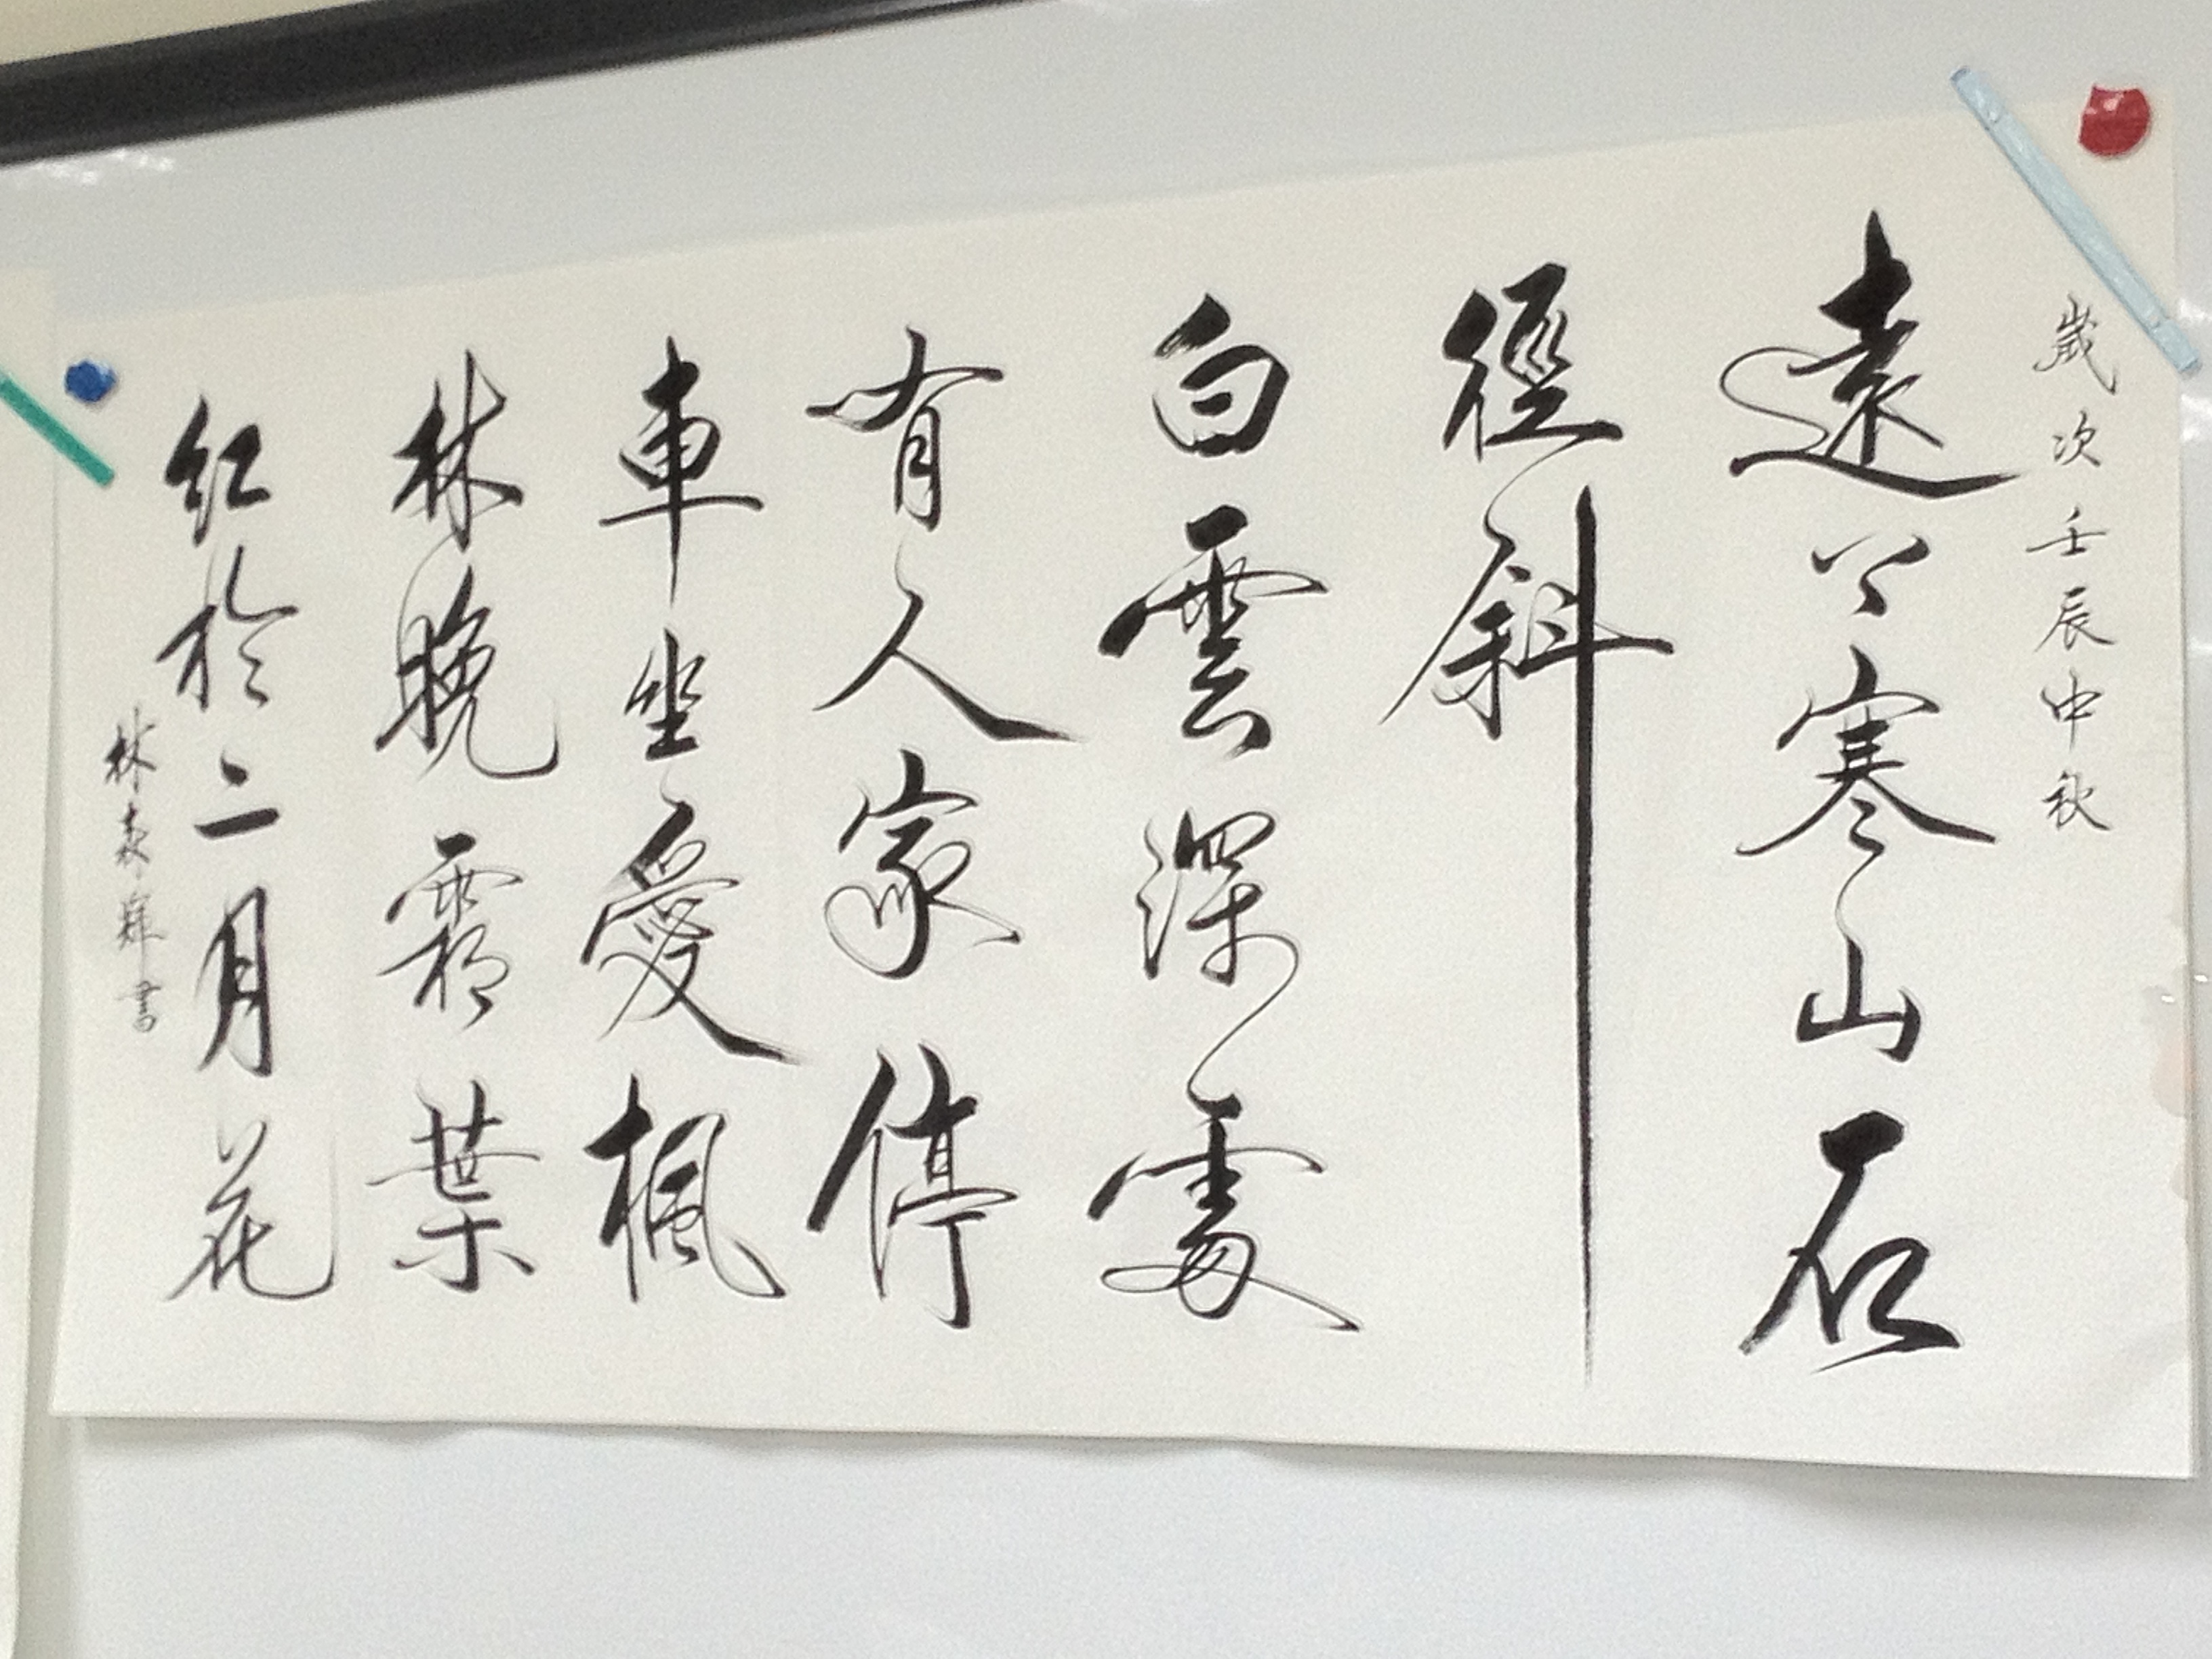 歲次壬辰中秋
遠上寒山石
徑斜
白雲深處
有人家停
車坐愛楓
林晚霜葉
紅於二月花
林輝書